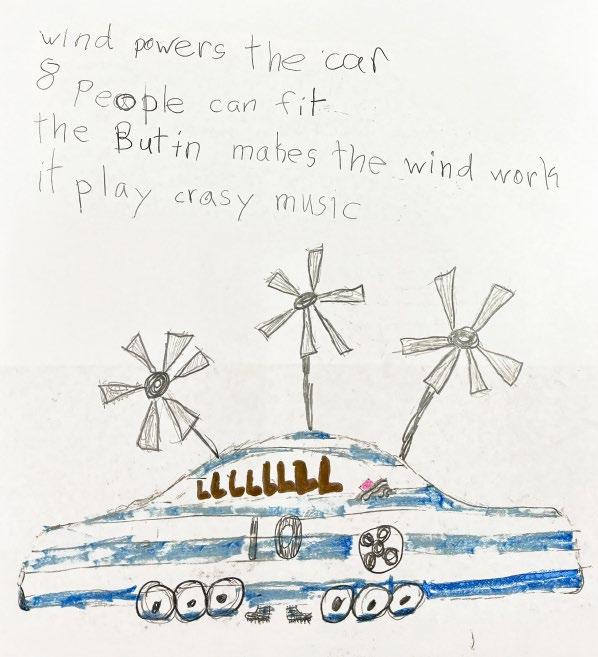 wind powers the car
8 People can fit
the Butin makes the wind work
it play crasy music
10